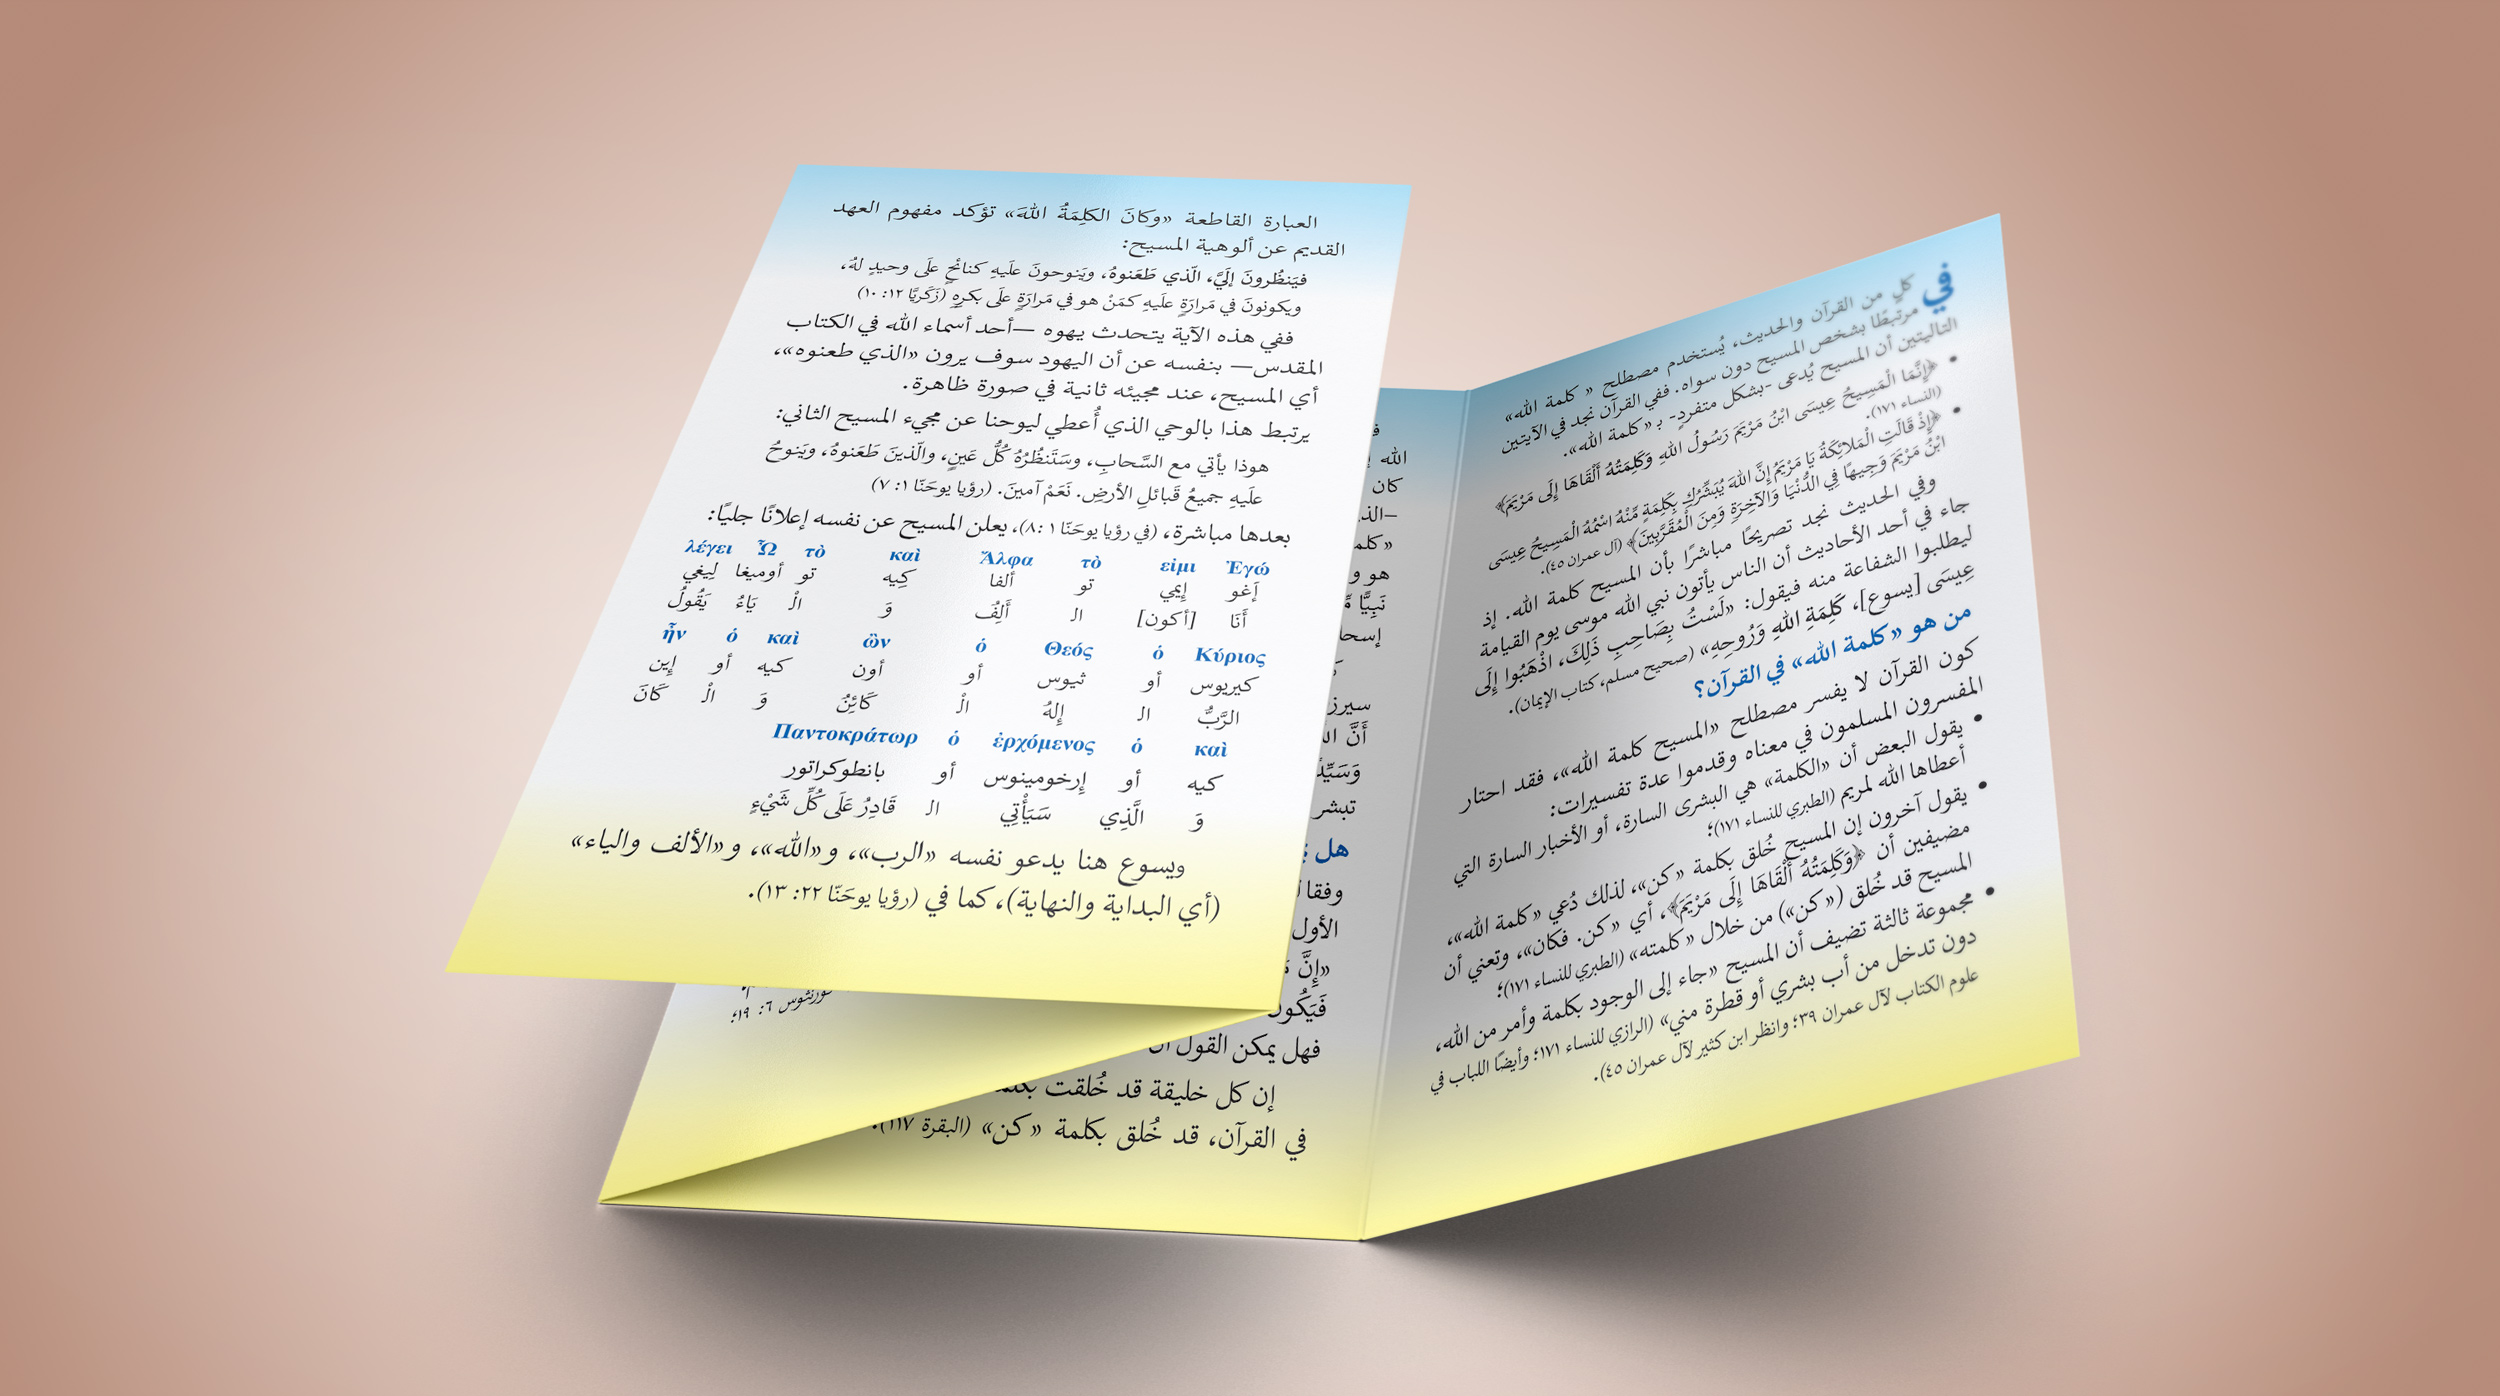 في كلٍ من القرآن والحديث، يُستخدم مصطلح «كلمة الله»
مرتبطًا بشخص المسيح دون سواه. ففي القرآن نجد في الآيتين
التاليتين أن المسيح يُدعى -بشكل متفردٍ- بـ «كلمة الله».
• ﴿إِنَّمَا الْمَسِيحُ عِيسَى ابْنُ مَرْيَمَ رَسُولُ اللهِ وَكَلِمَتُهُ أَلْقَاهَا إِلَى مَرْيَمَ﴾
(النساء ١٧١).
• ﴿إِذْ قَالَتِ الْمَلائِكَةُ يَا مَرْيَمُ إِنَّ اللهَ يُبَشِّرُكِ بِكَلِمَةٍ مِّنْهُ اسْمُهُ الْمَسِيحُ عِيسَى
ابْنُ مَرْيَمَ وَجِيهًا فِي الدُّنْيَا وَالآخِرَةِ وَمِنَ الْمُقَرَّبِينَ﴾ (آل عمران ٤٥).
وفي الحديث نجد تصريحًا مباشرًا بأن المسيح كلمة الله. إذ
جاء في أحد الأحاديث أن الناس يأتون نبي الله موسى يوم القيامة
ليطلبوا الشفاعة منه فيقول: «لَسْتُ بِصَاحِبِ ذَلِكَ، اذْهَبُوا إِلَى
عِيسَى [يسوع]، كَلِمَةِ اللهِ وَرُوحِهِ» (صحيح مسلم، كتاب الإيمان).
من هو «كلمة الله» في القرآن؟
كون القرآن لا يفسر مصطلح «المسيح كلمة الله»، فقد احتار
المفسرون المسلمون في معناه وقدموا عدة تفسيرات:
• يقول البعض أن «الكلمة» هي البشرى السارة، أو الأخبار السارة التي
أعطاها الله لمريم (الطبري للنساء ١٧١)؛
• يقول آخرون إن المسيح خُلق بكلمة «كن»، لذلك دُعي «كلمة الله»،
مضيفين أن ﴿وَكَلِمَتُهُ أَلْقَاهَا إِلَى مَرْيَمَ﴾، أي «كن. فكان»، وتعني أن
المسيح قد خُلق («كن») من خلال «كلمته» (الطبري للنساء ١٧١)؛
• مجموعة ثالثة تضيف أن المسيح «جاء إلى الوجود بكلمة وأمر من الله،
دون تدخل من أب بشري أو قطرة مني» (الرازي للنساء ١٧١؛ وأيضًا اللباب في
علوم الكتاب لآل عمران ٣٩؛ وانظر ابن كثير لآل عمران ٤٥).
الله
كان
هو
سيرز
تبشر
هل
وفقا
الأول
«إِنَّ
فهل يمكن القول أن
إن كل خليقة قد خُلقت
في القرآن، قد خُلق بكلمة «كن» (البقرة ١١٧).
٦: ١٩؛
العبارة القاطعة «وكانَ الكلِمَةُ اللهَ» تؤكد مفهوم العهد
القديم عن ألوهية المسيح:
فيَنظُرونَ إلَيَّ، الّذي طَعَنوهُ، ويَنوحونَ علَيهِ كنائحٍ علَى وحيدٍ لهُ،
ويكونونَ في مَرارَةٍ علَيهِ كمَنْ هو في مَرارَةٍ علَى بكرِهِ (زَكَريّا ١٢: ١٠)
ففي هذه الآية يتحدث يهوه —أحد أسماء الله في الكتاب
المقدس— بنفسه عن أن اليهود سوف يرون «الذي طعنوه»،
أي المسيح، عند مجيئه ثانية في صورة ظاهرة.
يرتبط هذا بالوحي الذي أُعطي ليوحنا عن مجيء المسيح الثاني:
هوذا يأتي مع السَّحابِ، وسَتَنظُرُهُ كُلُّ عَينٍ، والّذينَ طَعَنوهُ، ويَنوحُ
علَيهِ جميعُ قَبائلِ الأرضِ. نَعَمْ آمينَ. (رؤيا يوحَنّا ١: ٧)
بعدها مباشرة، (في رؤيا يوحَنّا ١: ٨)، يعلن المسيح عن نفسه إعلانًا جليًا:
Ἐγώ εἰμι τὸ Ἄλφα καὶ τὸ Ὦ λέγει
إَغو إيِمي تو ألفا كِيه تو أوميغا لِيغي
أَنَا [أكون] الـ أَلِفُ وَ الْـ يَاءُ يَقُولُ
Κύριος ὁ Θεός ὁ ὢν καὶ ὁ ἦν
كيريوس أو ثيوس أو أون كيه أو إين
الرَّبُّ الـ إِلهُ الْـ كَائِنُ وَ الْـ كَانَ
καὶ ὁ ἐρχόμενος ὁ Παντοκράτωρ
كيه أو إرخومينوس أو بانطوكراتور
وَ الَّذِي سَيَأْتِي الـ قَادِرُ عَلَى كُلِّ شَيْءٍ
ويسوع هنا يدعو نفسه «الرب»، و«الله»، و«الألف والياء»
(أي البداية والنهاية)، كما في (رؤيا يوحَنّا ٢٢: ١٣).